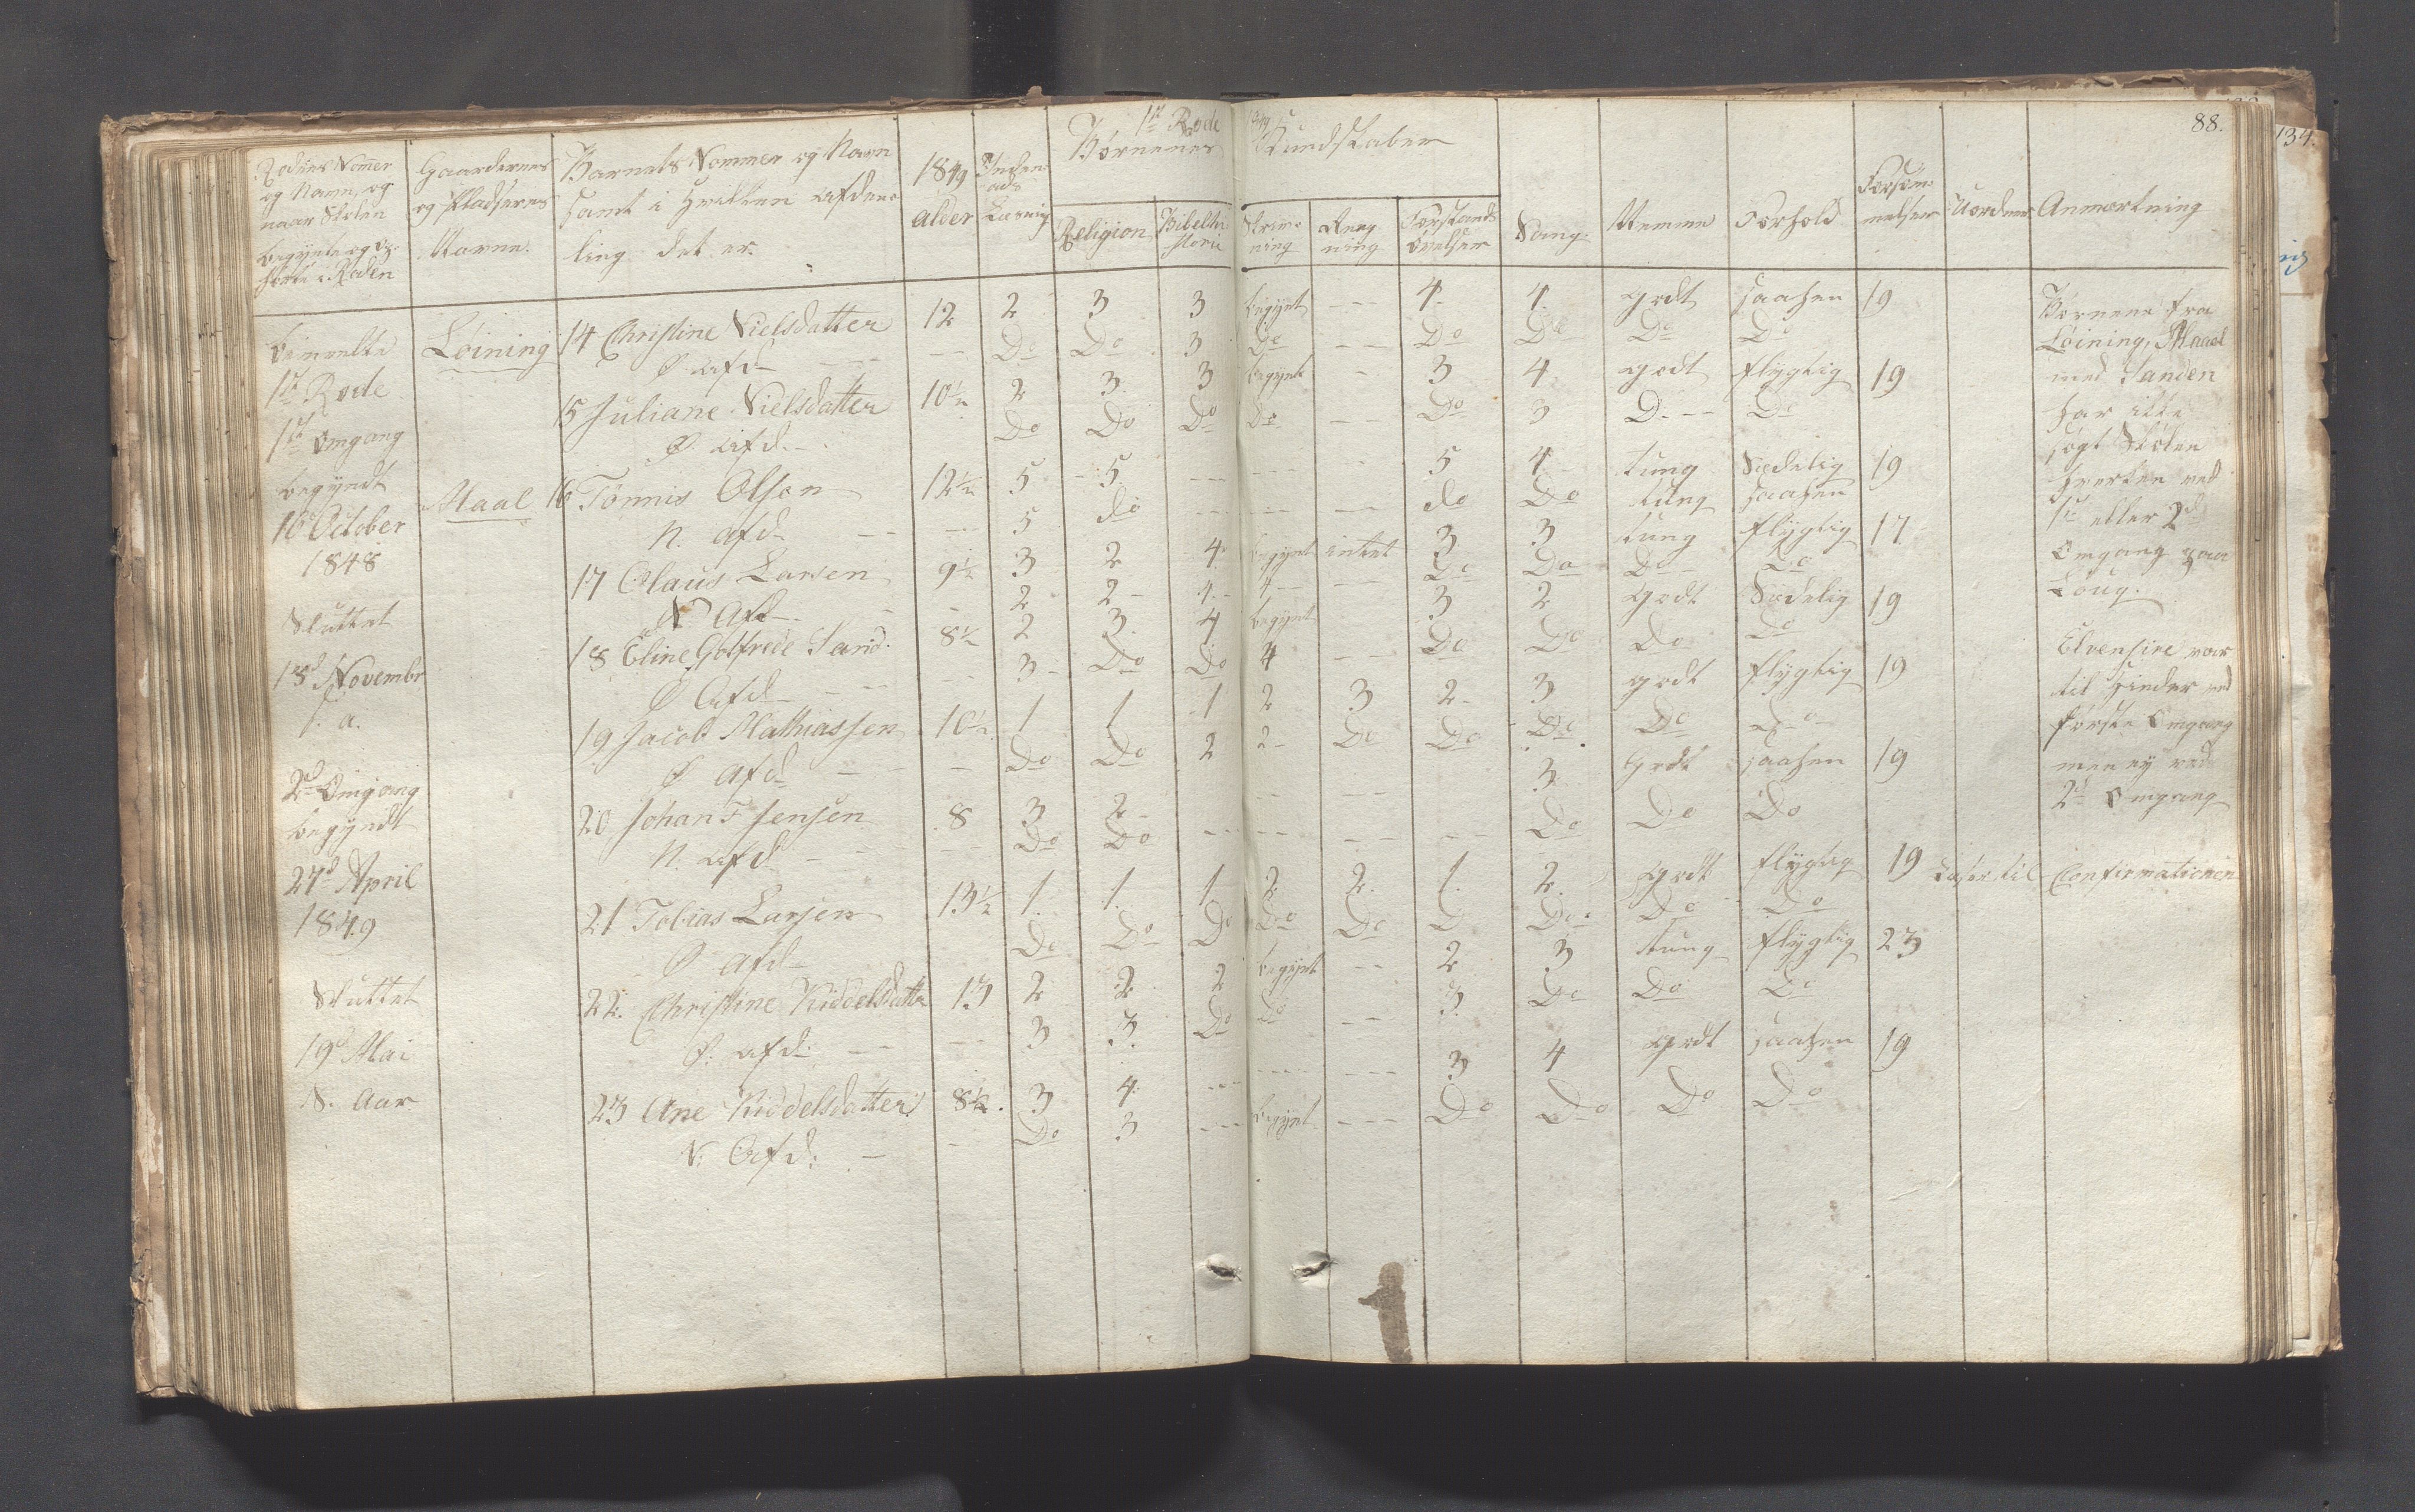 1st Rode 1849
88.
134.
Rodens Nommer og Navn, og naar Skolen begyndte og ophørte i Roden
Gaardernes og Pladsernes Navne.
Barnets Nommer og Navn samt i hvilken Afdeling det er.
1849 alder
Indenads Læsning
Børnenes Kundskaber
Religion
Bibelhistorie
Skrivning
Regning
Forstands Øvelser
Sang
Nemme
Forhold
Forsømmelser
Uordner
Anmærkning
1st Rode
1st Omgang
begyndt
16 October
1848
Sluttet
18d Novembr
s. a.
2d Omgang
begyndt
27d April
1849
Sluttet
19d Mai
S. Aar
Løining 14 Christine Nielsdatter 12 2 3 3 begynt - - 4 4 godt saahen 19
Ø afd - - - Do Do 3 Do - - Do Do Do Do
15 Juliane Nielsdatter 10½ 2 3 3 begynt - 3 4 godt flygtig 19
Ø. afd. - Do Do Do Do - - Do 3 D. - - Do
Maal 16 Tønnis Olsen 12½ 5 5 - - - - - 5 4 tung Sædelig 19
N. afd. - - - 5 do - - - - - - do Do tung saahen
17 Olaus Larsen 9½ 3 2 4 begynt intet 3 3 tung flygtig 17
N Afd - - - 2 2 4 4 - Do Do Do Do
18 Eline Gotfrede Sand. 8½ 2 3 4 begynt 3 2 godt Sædelig 19
Ø Afd - - - 3 Do Do 4 - - Do Do Do Do
19 Jacob Mathiassen 10½ 1 1 1 2 3 2 3 godt flygtig 19
Ø Afd - - - Do Do 2 2 Do Do Do Do Do
20 Johan F Jensen 8 3 2 - - - 3 godt saahen 19
N. afd - - - Do Do - - - - - - - - Do Do Do
21 Tobias Larsen 13½ 1 1 1 2 2 1 2 godt flygtig 19 Læser til Confirmationen
Ø Afd - Do Do Do Do Do D Do Do Do
22. Christine Kiddelsdatter 13 2 2 2 begynt - - 2 3 tung flygtig 23
Ø. afd: - - - 3 3. Do Do - - 3. Do Do Do
23 Ane Kiddelsdatter 8½. 3 4 - - - - - - 3 4 godt saahen 19
N: Afd: - - Do 3 - - - begynt - - - Do Do Do Do
Børnene fra
Løining, Maael
med Sanden
har ikke
søgt Skolen
hverken ved
1st eller 2d
Omgang paa
Loug.
Elvensire var
til Hinder ved
første Omgang
men ej ved
2d Omgang